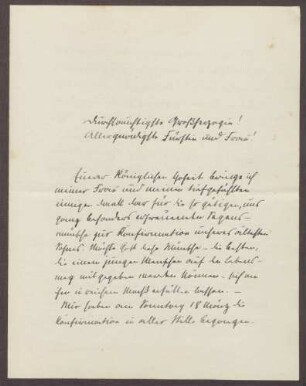 Durchlauchtigste Großherzogin!
Allergnädigste Fürstin und Frau!
Euerer Königlichen Hoheit bringe ich
meiner Frau und meinen tiefgefühlten
innigen Dank dar für die so gütigen, uns
ganz besonders erfreuenden Segens-
wünsche zur Konfirmation unseres ältesten
Sohnes. Möchte Gott diese Wünsche – die besten,
die einem jungen Menschen auf den Lebens-
weg mitgegeben werden können – sich an
ihm in reichem Maaß erfüllen lassen. –
Wir haben am Sonntag 18 März die
Konfirmation in aller Stille begangen.